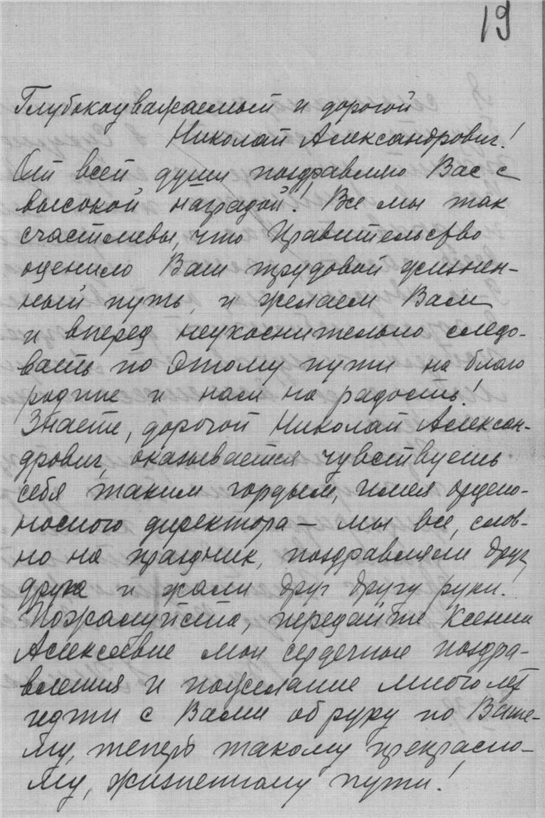 19
Глубокоуважаемый и дорогой
Николай Александрович!
От всей души поздравляю Вас с
высокой наградой! Все мы так
счастливы, что Правительство
оценило Ваш трудовой жизнен-
ный путь, и желаем Вам
и вперед неукоснительно следо-
вать по этому пути на благо
родине и нам на радость!
Знаете, дорогой Николай Алексан-
дрович, оказывается чувствуешь
себя таким гордым, имея ордено-
носного директора – мы все, слов-
но на праздник, поздравляли друг
друга и жали друг другу руки!
Пожалуйста, передайте Ксении
Алексеевне мои сердечные поздра-
вления и пожелание много лет
идти с Вами об руку по Ваше-
му, теперь такому прекрасно-
му, жизненному пути!